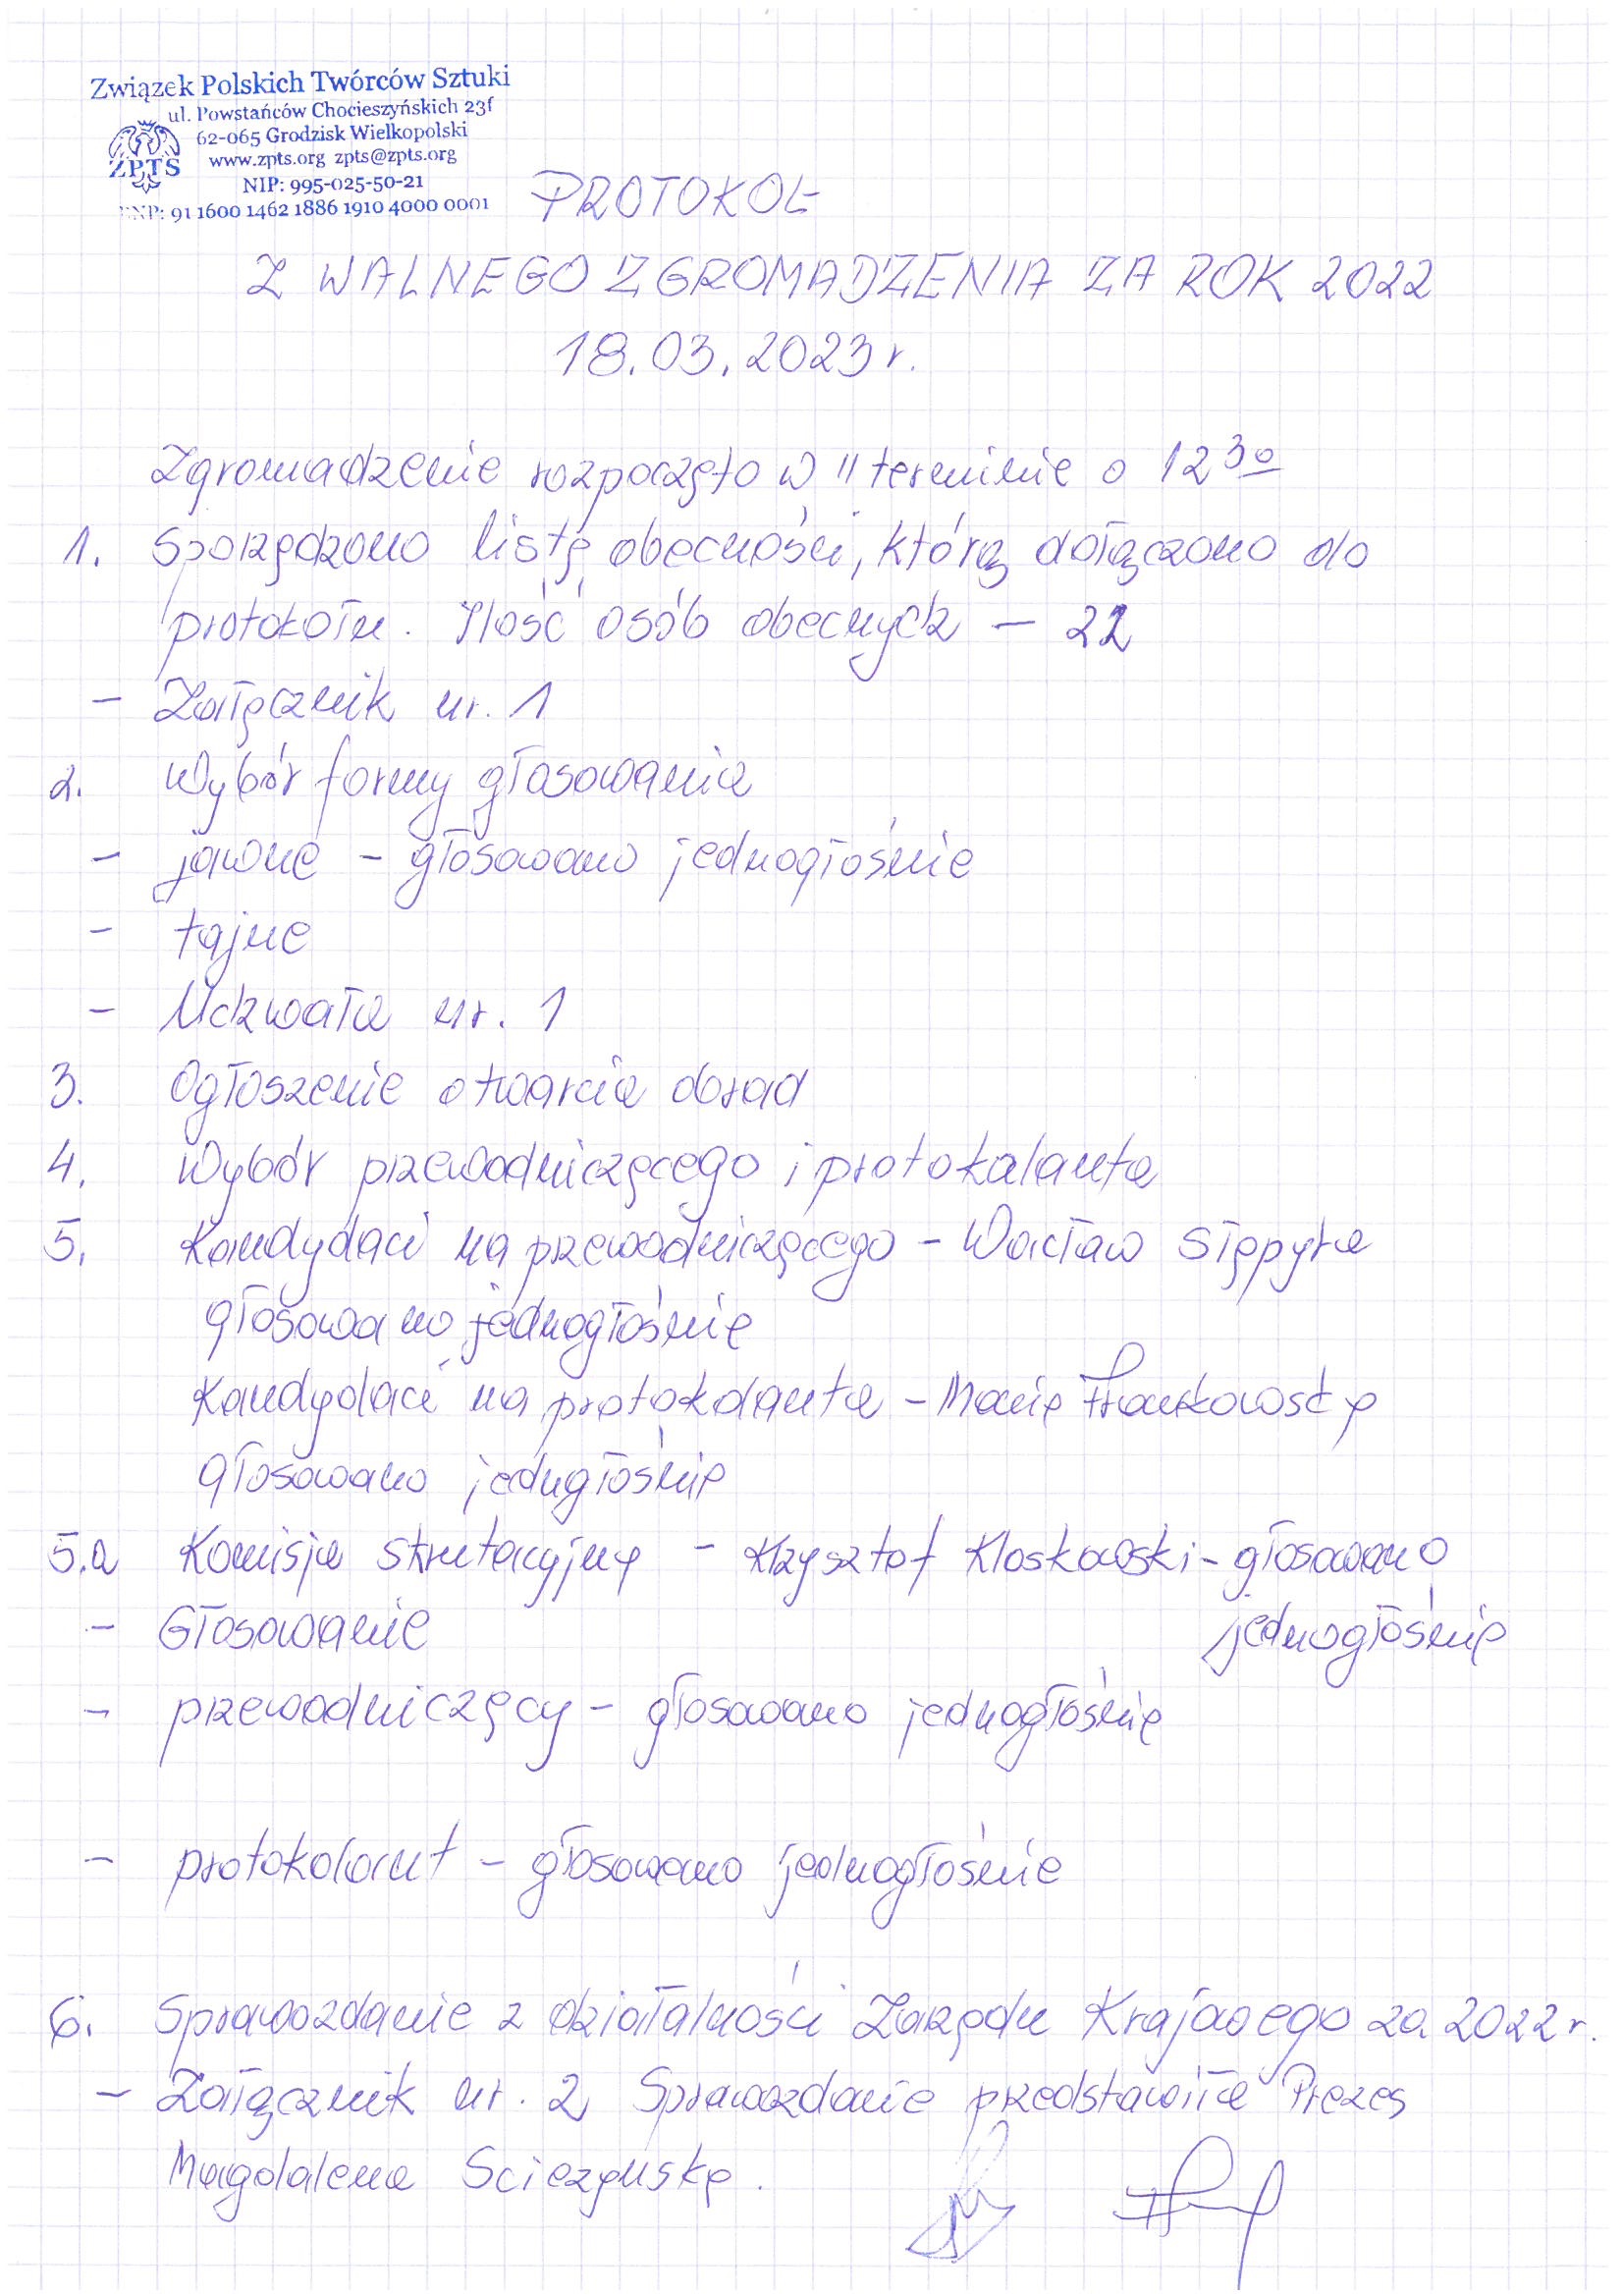 Związek Polskich Twórców Sztuki
ul. Powstańców Chocieszyńskich 23f
62-065 Grodzisk Wielkopolski
ZPTS
www.zpts.org zpts@zpts.org
NIP: 995-025-50-21
91 1600 1462 1886 1910 4000 0001
PROTOKÓŁ
Z WALNEGO ZGROMADZENIA ZA ROK 2022
18.03.2023 r.
Zgromadzenie rozpoczęto w II terminie o 12 30
1. Sporządzono listę obecności, którą dołączono do
protokołu. Ilość osób obecnych – 22
– Załącznik nr. 1
2. Wybór formy głosowania
– jawne – głosowano jednogłośnie
– tajne
– Uchwała nr. 1
3. Ogłoszenie otwarcia obrad
4. Wybór przewodniczącego i protokalanta
5. Kandydaci na przewodniczącego – Wacław Stępyra
głosowano jednogłośnie
Kandydaci na protokolanta – Maria
głosowano jednogłośnie
5.a Komisja skrutacyjny – Krzysztof Kloskowski – głosowano
– Głosowanie
jednogłośnie
– przewodniczący – głosowano jednogłośnie
– protokolant – głosowano jednogłośnie
6. Sprawozdanie z działalności Zarządu Krajowego za 2022 r.
– Załącznik nr. 2 Sprawozdanie przedstawiła Prezes
Magdalena